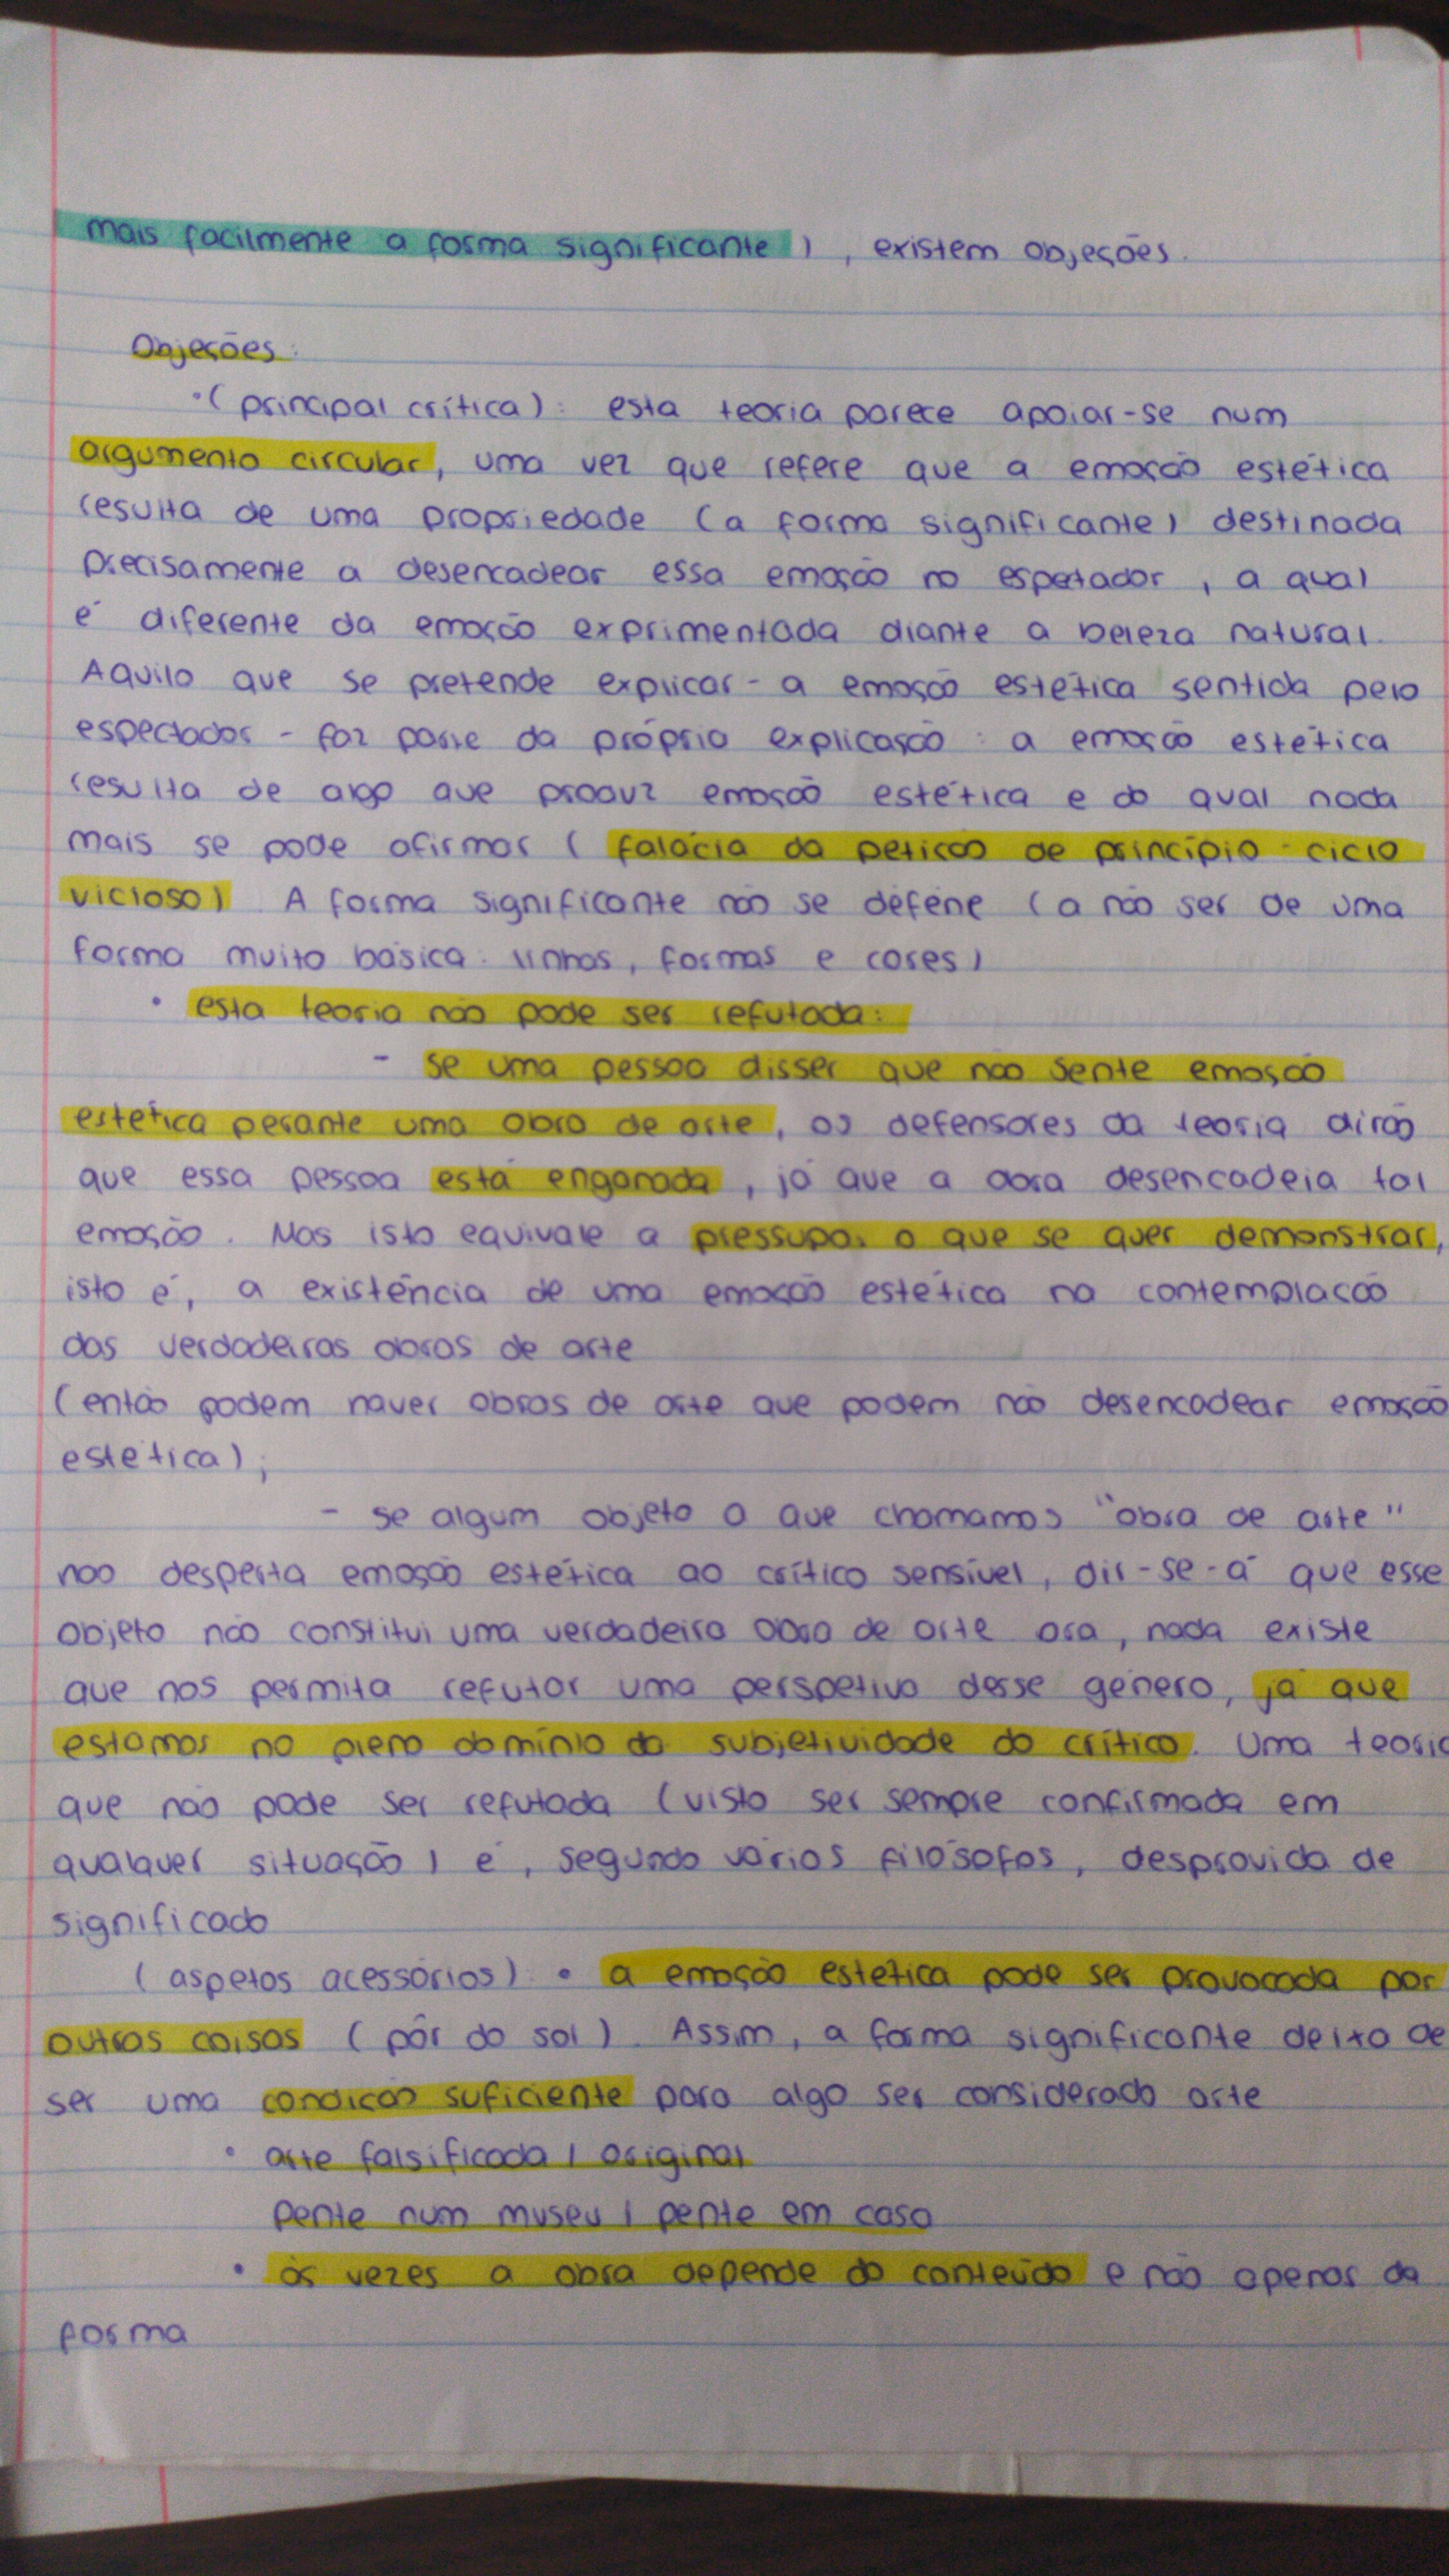 mais facilmente a forma significante), existem objeções.
Objeções:
• (principal crítica): esta teoria parece apoiar-se num
argumento circular, uma vez que refere que a emoção estética
resulta de uma propriedade (a forma significante) destinada
precisamente a desencadear essa emoção no espetador, a qual
é diferente da emoção exprimentada diante a beleza natural.
Aquilo que se pretende explicar - a emoção estética sentida pelo
espectador - faz parte da própria explicação: a emoção estética
resulta de algo que produz emoção estética e do qual nada
mais se pode afirmar (falácia da petição de princípio - ciclo
vicioso). A forma significante não se défine (a não ser de uma
forma muito básica: linhas, formas e cores)
• esta teoria não pode ser refutada:
- se uma pessoa disser que não sente emoção
estética perante uma obra de arte, os defensores da teoria dirão
que essa pessoa está enganada, já que a obra desencadeia tal
emoção. Mas isto equivale a pressupor o que se quer demonstrar,
isto é, a existência de uma emoção estética na contemplação
das verdadeiras obras de arte
(então podem haver obras de arte que podem não desencadear emoção
estética);
- se algum objeto a que chamamos "obra de arte"
não desperta emoção estética ao crítico sensível, dir-se-á que esse
objeto não constitui uma verdadeira obra de arte ora, nada existe
que nos permita refutar uma perspetiva desse género, já que
estamos no pleno domínio da subjetividade do crítico. Uma teoria
que não pode ser refutada (visto ser sempre confirmada em
qualquer situação) é, segundo vários filósofos, desprovida de
significado
(aspetos acessórios) • a emoção estética pode ser provocada por
outras coisas (pôr do sol). Assim, a forma significante deixa de
ser uma condição suficiente para algo ser considerado arte
• arte falsificada / original
pente num museu / pente em casa
• às vezes a obra depende do conteúdo e não apenas da
forma